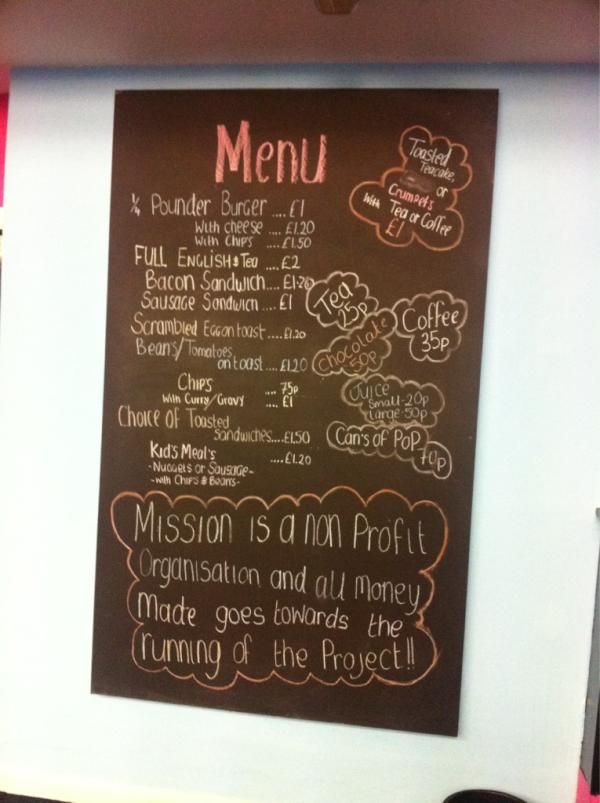 Menu
1/4 Pounder Burger .... £1
With cheese .... £1.20
With Chips .... £1.50
FULL ENGLISH & Tea .... £2
Bacon Sandwich .... £1.20
Sausage Sandwich .... £1
Scrambled Egg on toast .... £1.20
Beans/Tomatoes
on toast .... £1.20
Chips .... 75p
With Curry/Gravy .... £1
Choice Of Toasted
Sandwiches .... £1.50
Kid's Meal's .... £1.20
- Nuggets or Sausage -
- with Chips & Beans -
Toasted
Teacake,
or
Crumpets
With Tea or Coffee
£1
Tea
25p
Coffee
35p
Chocolate
50p
Juice
Small - 20p
Large - 50p
Can's of Pop
70p
Mission is a non Profit
Organisation and all money
Made goes towards the
running of the Project!!